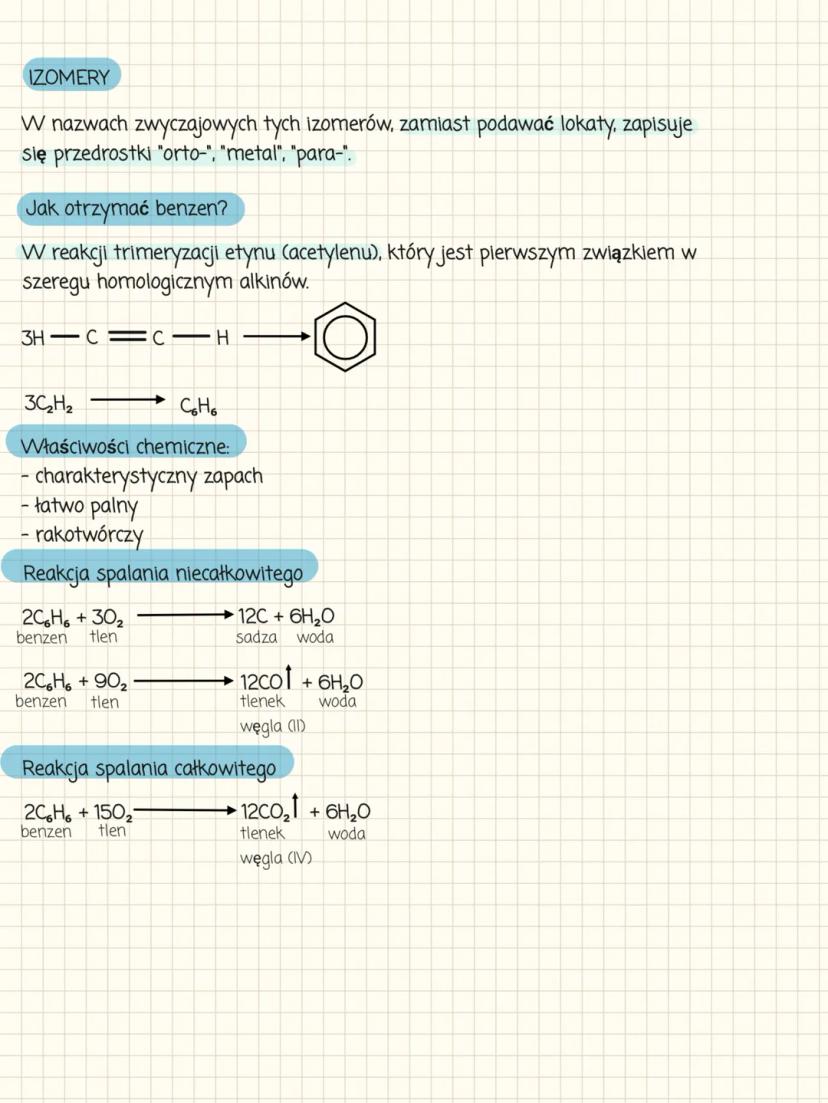 IZOMERY
W nazwach zwyczajowych tych izomerów, zamiast podawać lokaty, zapisuje
się przedrostki "orto-", "metal", "para-".
Jak otrzymać benzen?
W reakcji trimeryzacji etynu (acetylenu), który jest pierwszym związkiem w
szeregu homologicznym alkinów.
3H — C = C — H →
3C₂H₂ → C₆H₆
Właściwości chemiczne:
- charakterystyczny zapach
- łatwo palny
- rakotwórczy
Reakcja spalania niecałkowitego
2C₆H₆ + 3O₂ → 12C + 6H₂O
benzen tlen sadza woda
2C₆H₆ + 9O₂ → 12CO↑ + 6H₂O
benzen tlen tlenek woda
węgla (II)
Reakcja spalania całkowitego
2C₆H₆ + 15O₂ → 12CO₂↑ + 6H₂O
benzen tlen tlenek woda
węgla (IV)